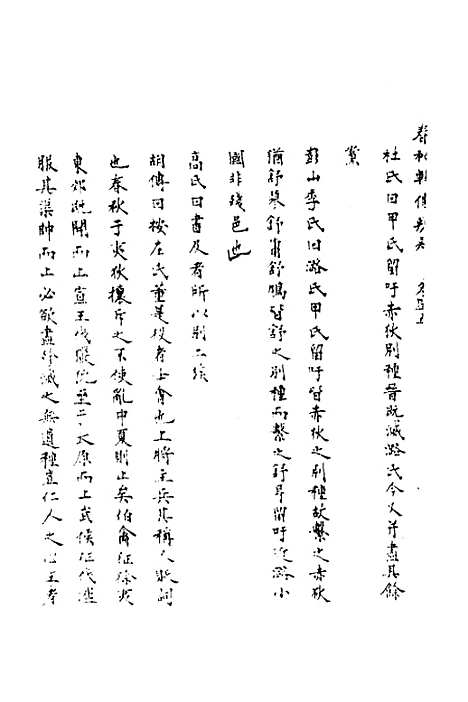 春秋輯傳辨疑
杜氏曰甲氏留吁赤狄別種晉既滅潞氏今又并盡其餘
黨
彭山季氏曰潞氏甲氏留吁皆赤狄之別種故繫之赤狄
猶舒蓼舒庸舒鳩皆舒之別種而繫之舒耳留吁近潞小
國非殘邑也
高氏曰書及者所以別二族
胡傳曰按左氏董是役者士會也上將主兵其稱人貶詞
也春秋于夷狄攘斥之不使亂中夏則止矣伯禽征徐夷
東郊既開而止宣王伐玁狁至于太原而止武侯征戎瀘
服其渠帥而止必欲盡殄滅之無遺種豈仁人之心王者